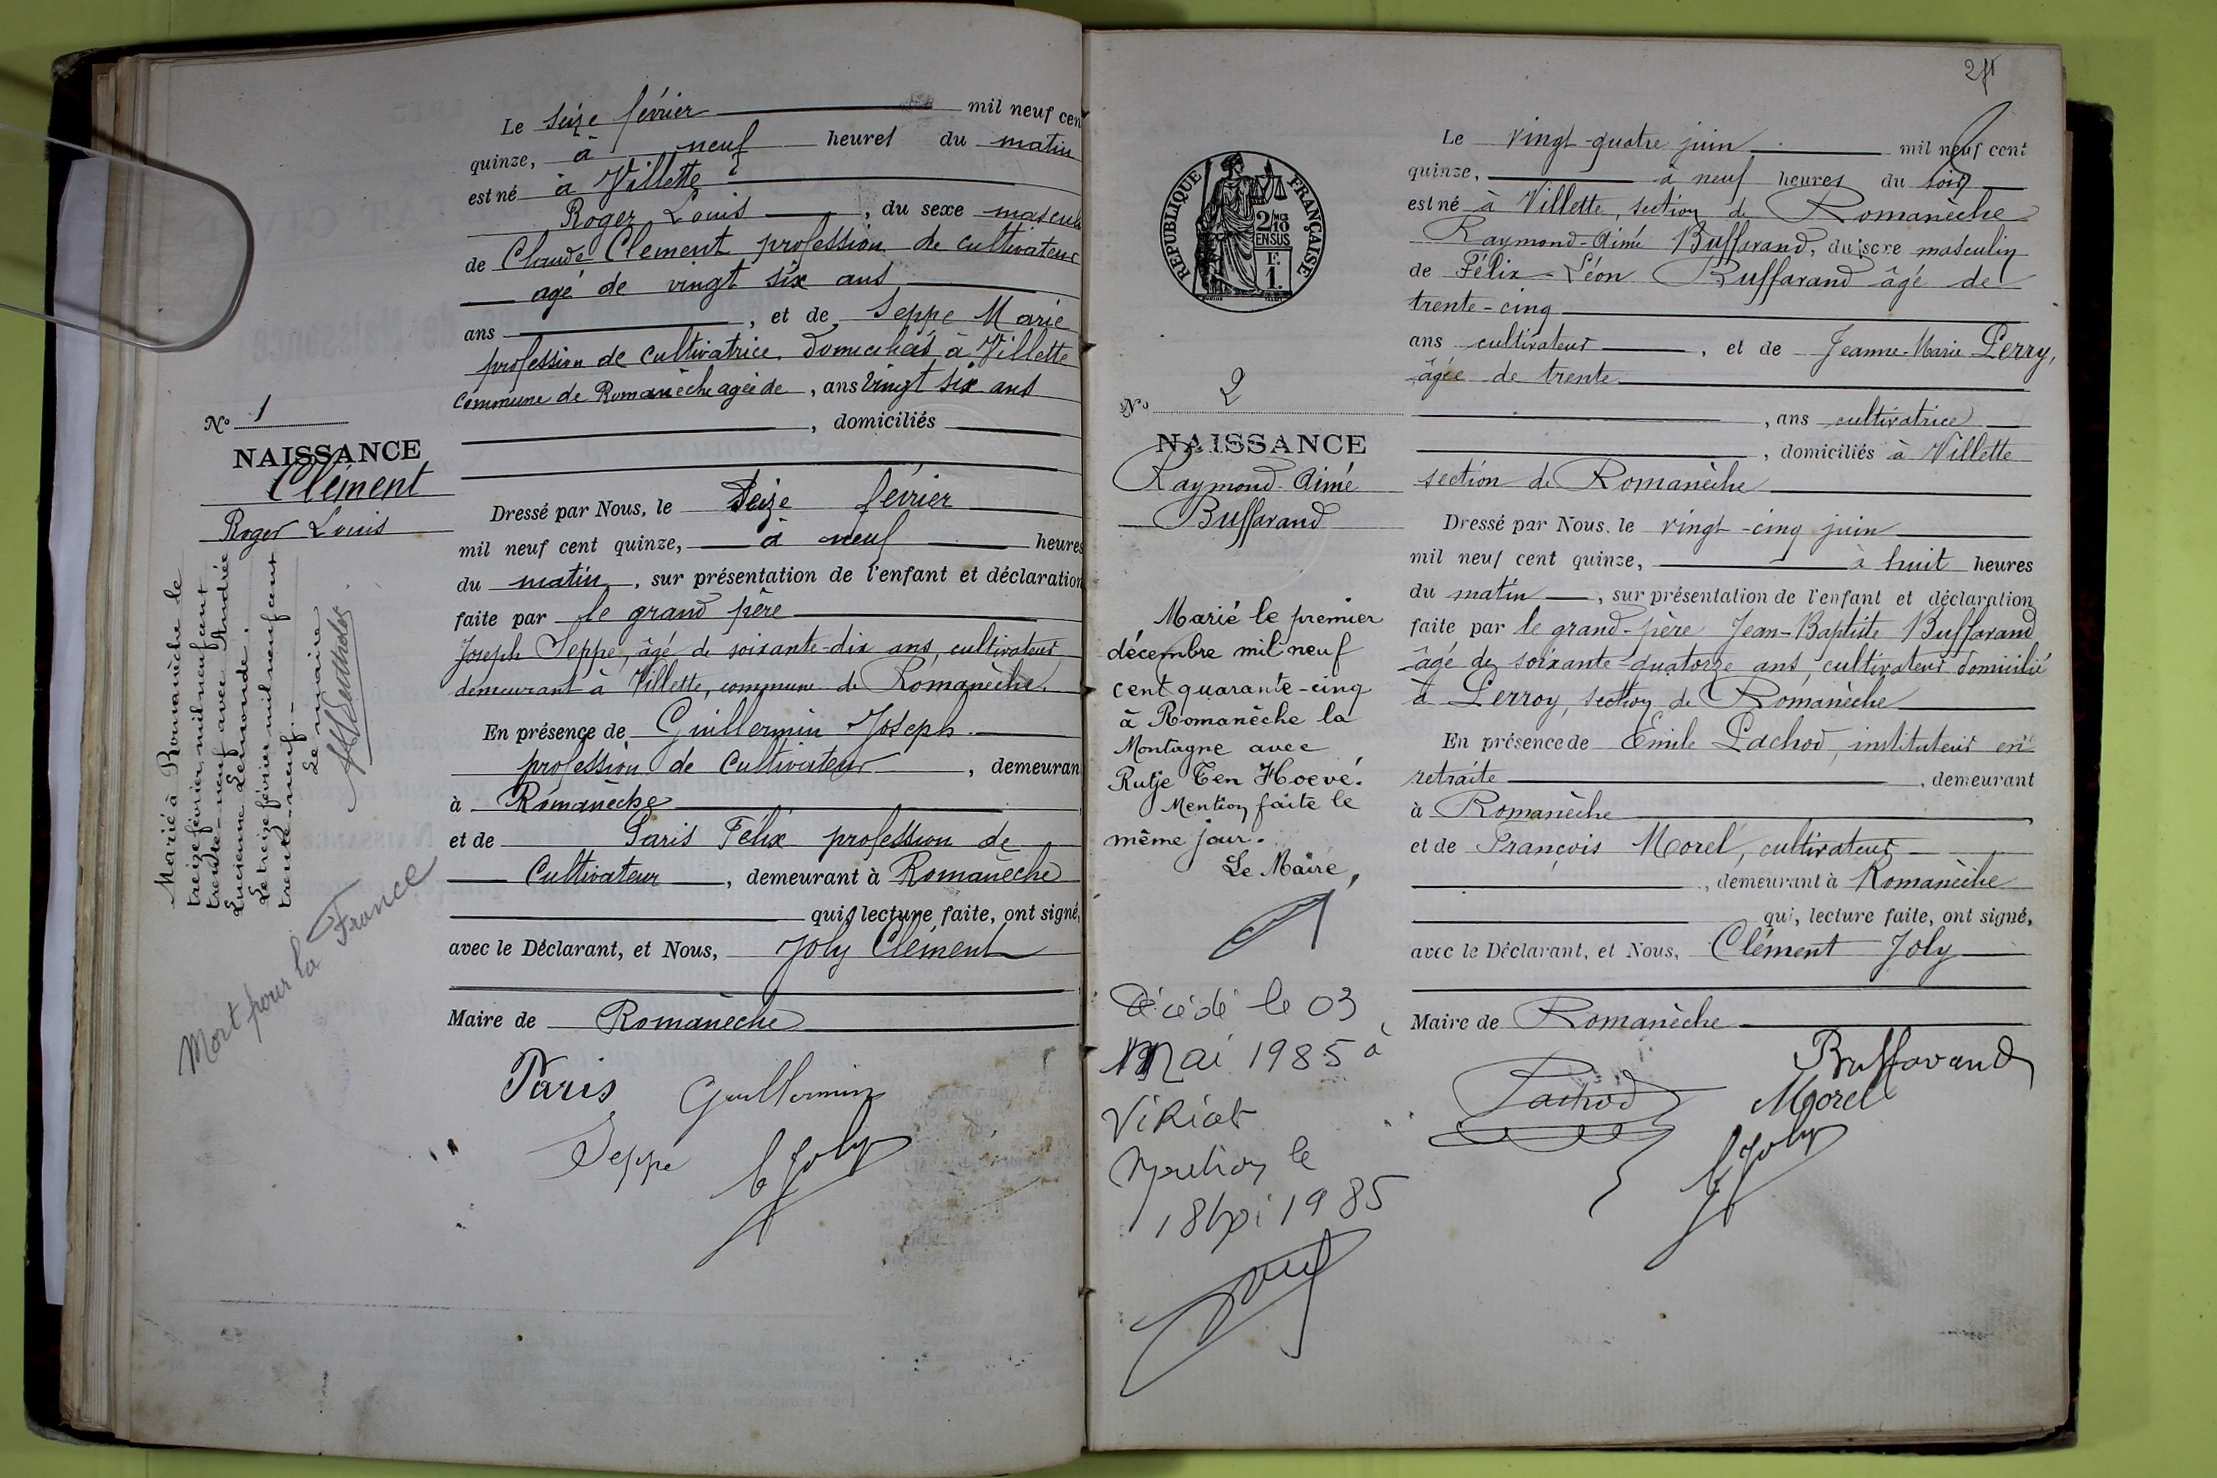 Le seize février mil neuf cen
quinze, à neuf heures du matin
est né à Villette
Roger Louis , du sexe mascul
de Claude Clement profession de cultivateur
agé de vingt six ans
ans , et de Seppe Marie
profession de cultivatrice. domiciliés à Villette
commune de Romanèche agée de , ans vingt six ans
, domiciliés
N° 1
NAISSANCE
Clément
Roger Louis
Marié à Romanèche le
treize février mil neuf cent
trente-neuf avec Andrée
Lucienne Lemonde.
Le treize février mil neuf cent
trente-neuf.-
Le maire
Mort pour la France
Dressé par Nous, le Seize février
mil neuf cent quinze, à neuf heures
du matin , sur présentation de l'enfant et déclaration
faite par le grand père
Joseph Seppe, âgé de soixante-dix ans, cultivateur
demeurant à Villette, commune de Romanèche.
En présence de Guillermin Joseph
profession de Cultivateur , demeuran
à Romanèche
et de Paris Félix profession de
Cultivateur , demeurant à Romanèche
qui, lecture faite, ont signé,
avec le Déclarant, et Nous, Joly Clément
Maire de Romanèche
Paris Guillermin
Seppe C Joly
REPUBLIQUE FRANÇAISE
2/10 EN SUS
1 F.
N° 2
NAISSANCE
Raymond-Aimé
Buffavand
Marié le premier
décembre mil neuf
cent quarante-cinq
à Romanèche la
Montagne avec
Rutje Ten Hoevé.
Mention faite le
même jour.
Le Maire,
Décédé le 03
Mai 1985 à
Viriat
Mention le
1985
Le vingt-quatre juin mil neuf cent
quinze, à neuf heures du soir
est né à Villette, section de Romanèche
Raymond-Aimé Buffavand, du sexe masculin
de Félix-Léon Buffavand âgé de
trente-cinq
ans cultivateur , et de Jeanne-Marie Perry,
âgée de trente
, ans cultivatrice
, domiciliés à Villette
section de Romanèche
Dressé par Nous, le vingt-cinq juin
mil neuf cent quinze, à huit heures
du matin , sur présentation de l'enfant et déclaration
faite par le grand-père Jean-Baptiste Buffavand
âgé de soixante-quatorze ans, cultivateur domicilié
à Perroy, section de Romanèche
En présence de Emile Pachod, instituteur en
retraite , demeurant
à Romanèche
et de François Morel, cultivateur
, demeurant à Romanèche
qui, lecture faite, ont signé,
avec le Déclarant, et Nous, Clément Joly
Maire de Romanèche
Buffavand
Pachod Morel
C Joly